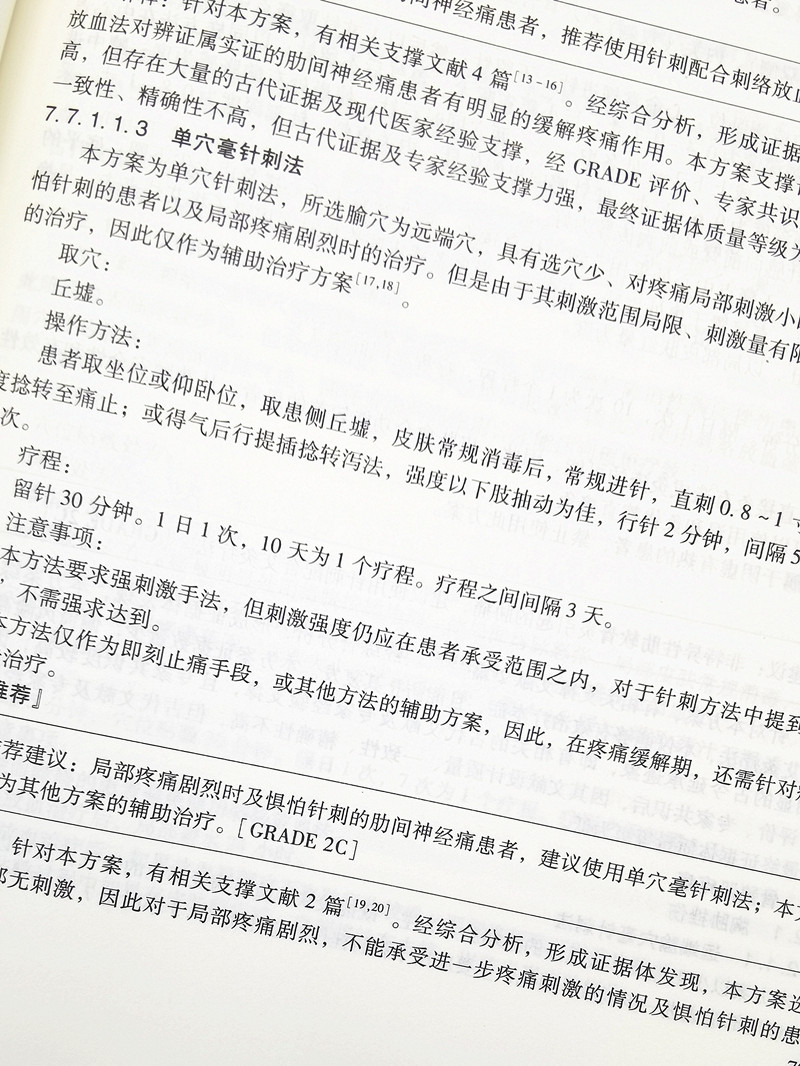 肋间神经痛患者，推荐使用针刺配合刺络放血
释：针对本方案，有相关支撑文献 4 篇[13-16]。经综合分析，形成证据
放血法对辨证属实证的肋间神经痛患者有明显的缓解疼痛作用。本方案支撑
高，但存在大量的古代证据及现代医家经验支撑，经 GRADE 评价、专家共识
一致性、精确性不高，但古代证据及专家经验支撑力强，最终证据体质量等级为
7.7.1.1.3 单穴毫针刺法
本方案为单穴针刺法，所选腧穴为远端穴，具有选穴少、对疼痛局部刺激小
怕针刺的患者以及局部疼痛剧烈时的治疗。但是由于其刺激范围局限、刺激量有限
的治疗，因此仅作为辅助治疗方案[17,18]。
取穴：
丘墟。
操作方法：
患者取坐位或仰卧位，取患侧丘墟，皮肤常规消毒后，常规进针，直刺 0.8～1
度捻转至痛止；或得气后行提插捻转泻法，强度以下肢抽动为佳，行针 2 分钟，间隔 5
次。
疗程：
留针 30 分钟。1 日 1 次，10 天为 1 个疗程。疗程之间间隔 3 天。
注意事项：
本方法要求强刺激手法，但刺激强度仍应在患者承受范围之内，对于针刺方法中提到
，不需强求达到。
本方法仅作为即刻止痛手段，或其他方法的辅助方案，因此，在疼痛缓解期，还需针对
治疗。
推荐』
荐建议：局部疼痛剧烈时及惧怕针刺的肋间神经痛患者，建议使用单穴毫针刺法；本方
为其他方案的辅助治疗。[GRADE 2C]
针对本方案，有相关支撑文献 2 篇[19,20]。经综合分析，形成证据体发现，本方案选
部无刺激，因此对于局部疼痛剧烈，不能承受进一步疼痛刺激的情况及惧怕针刺的患